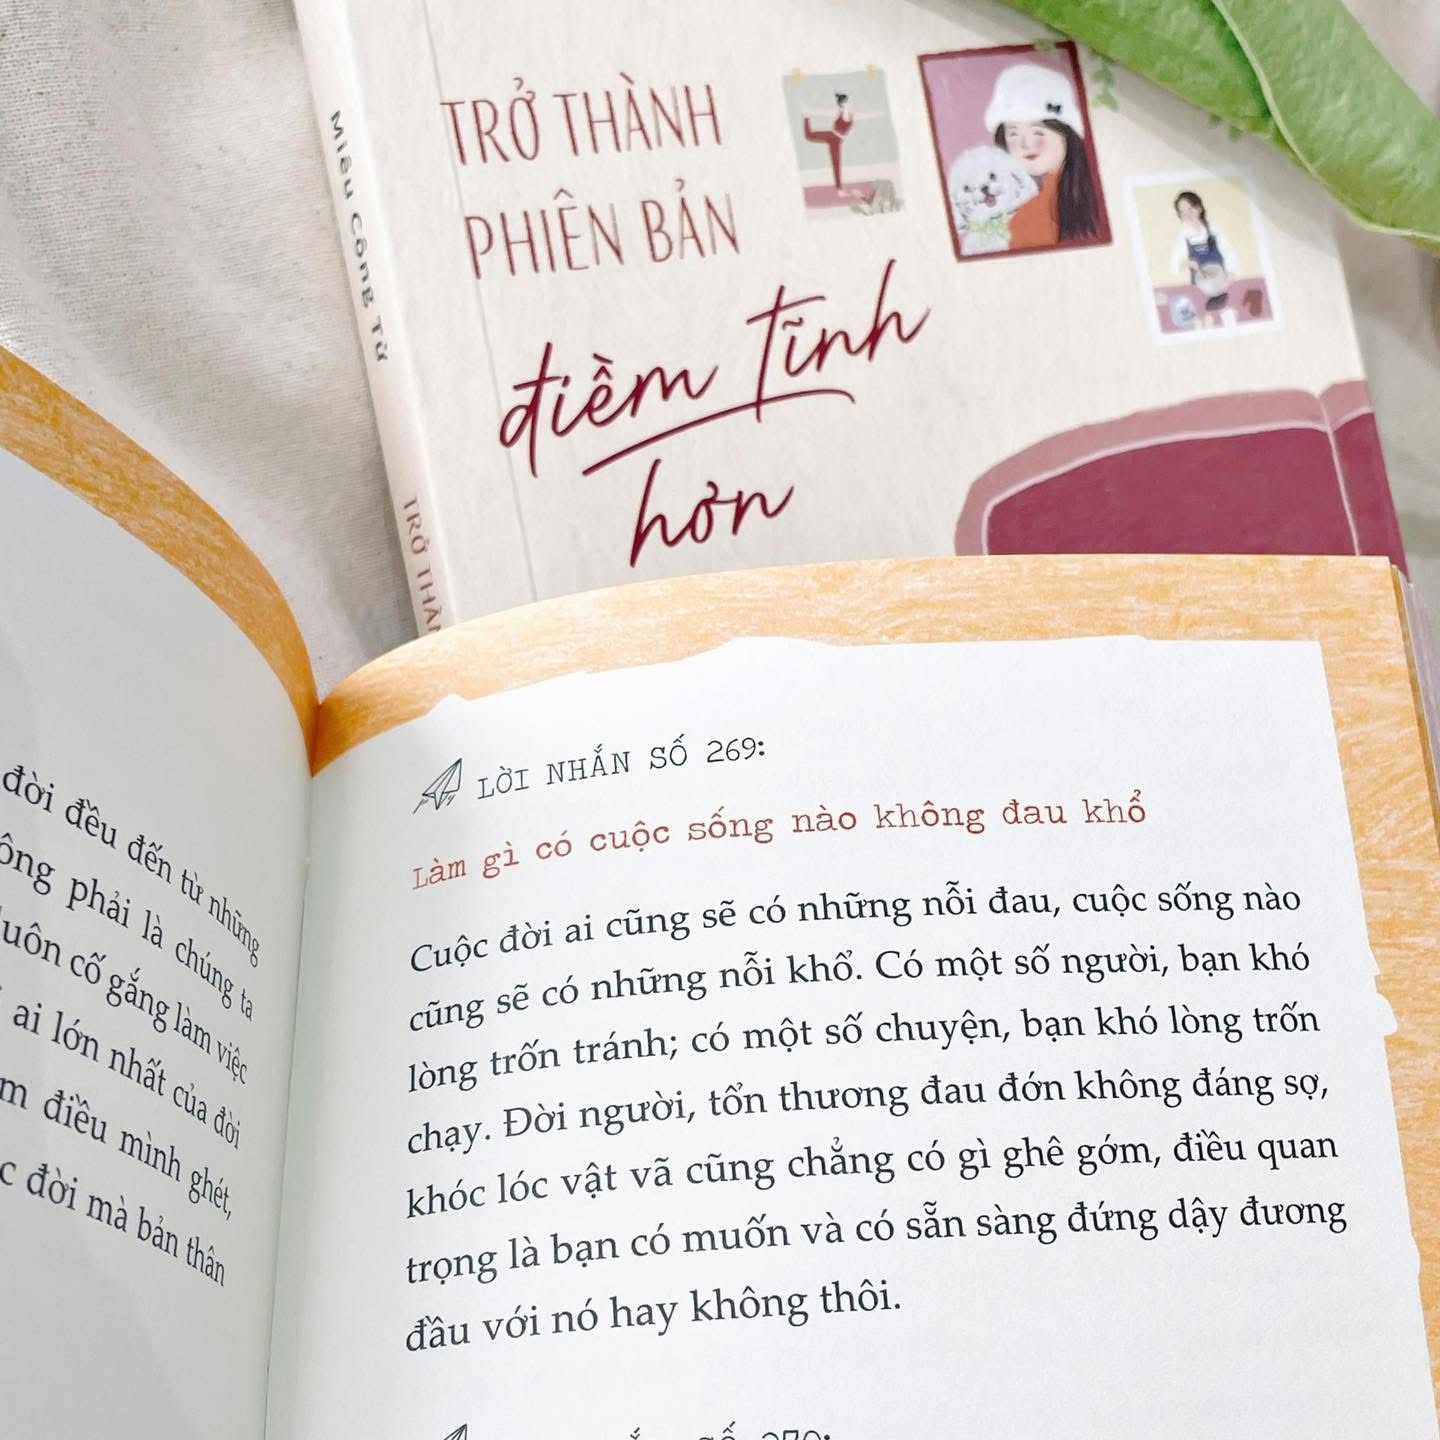 TRỞ THÀNH
PHIÊN BẢN
điềm tĩnh
hơn
Miêu Công Tử
TRỞ
đời đều đến từ những
phải là chúng ta
cố gắng làm việc
ai lớn nhất của đời
điều mình ghét,
đời mà bản thân
LỜI NHẮN SỐ 269:
Làm gì có cuộc sống nào không đau khổ
Cuộc đời ai cũng sẽ có những nỗi đau, cuộc sống nào
cũng sẽ có những nỗi khổ. Có một số người, bạn khó
lòng trốn tránh; có một số chuyện, bạn khó lòng trốn
chạy. Đời người, tổn thương đau đớn không đáng sợ,
khóc lóc vật vã cũng chẳng có gì ghê gớm, điều quan
trọng là bạn có muốn và có sẵn sàng đứng dậy đương
đầu với nó hay không thôi.